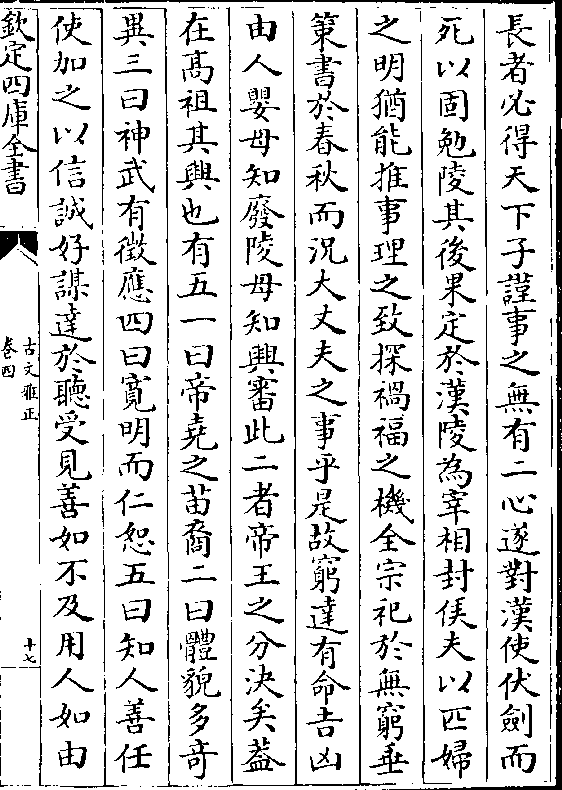 長者必得天下子謹事之無有二心遂對漢使伏劍而
死以固勉陵其後果定於漢陵為宰相封侯夫以匹婦
之明猶能推事理之致探禍福之機全宗祀於無窮垂
策書於春秋而況大丈夫之事乎是故窮達有命吉凶
由人嬰母知廢陵母知興審此二者帝王之分決矣葢
在髙祖其興也有五一曰帝堯之苗裔二曰體貌多奇
異三曰神武有徵應四曰寛明而仁恕五曰知人善任
使加之以信誠好謀達於聽受見善如不及用人如由
欽定四庫全書
古文雅正
卷四
十七